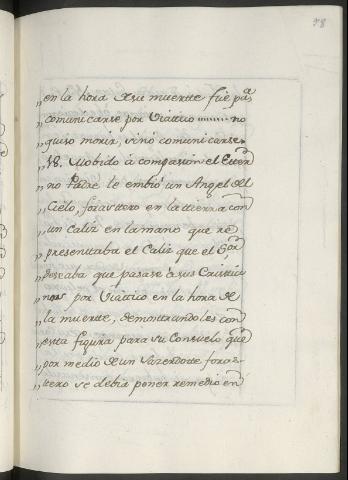 58
„ en la hora de su muertte fué pa
„ comunicarse por Viattico no
„ quiso morir, sinó comunicarse
„ 18. Mobido á compasion el Etter
„ no Padre le embió un Angel del
„ Cielo, forasttero en la tierra con
„ un Caliz en la mano que re
„ presenttaba el Caliz que el Sor
„ deseaba que pasase á sus Cristtia
„ nos por Viattico en la hora de
„ la muertte, demonttrandoles con
„ estta figura para su Consuelo que
„ por medio de un Sazerdotte foras
„ ttero se debia poner remedio en